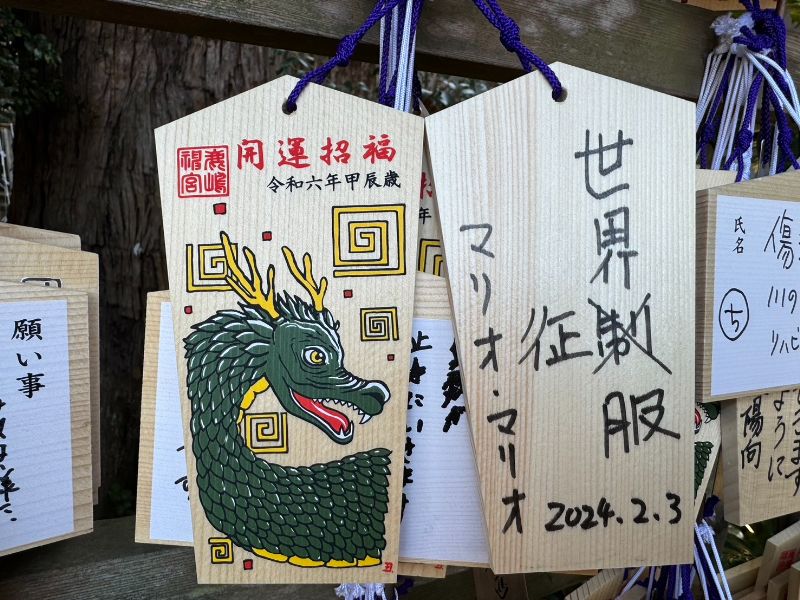 開運招福
鹿嶋神宮
令和六年甲辰歳
世界制服
征
マリオ・マリオ
2024.2.3
願い事
氏名
ち
傷
川の
リハビ
ように
陽向